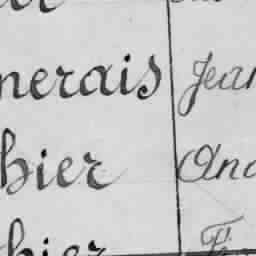 nerais Jean
hier And
hier F